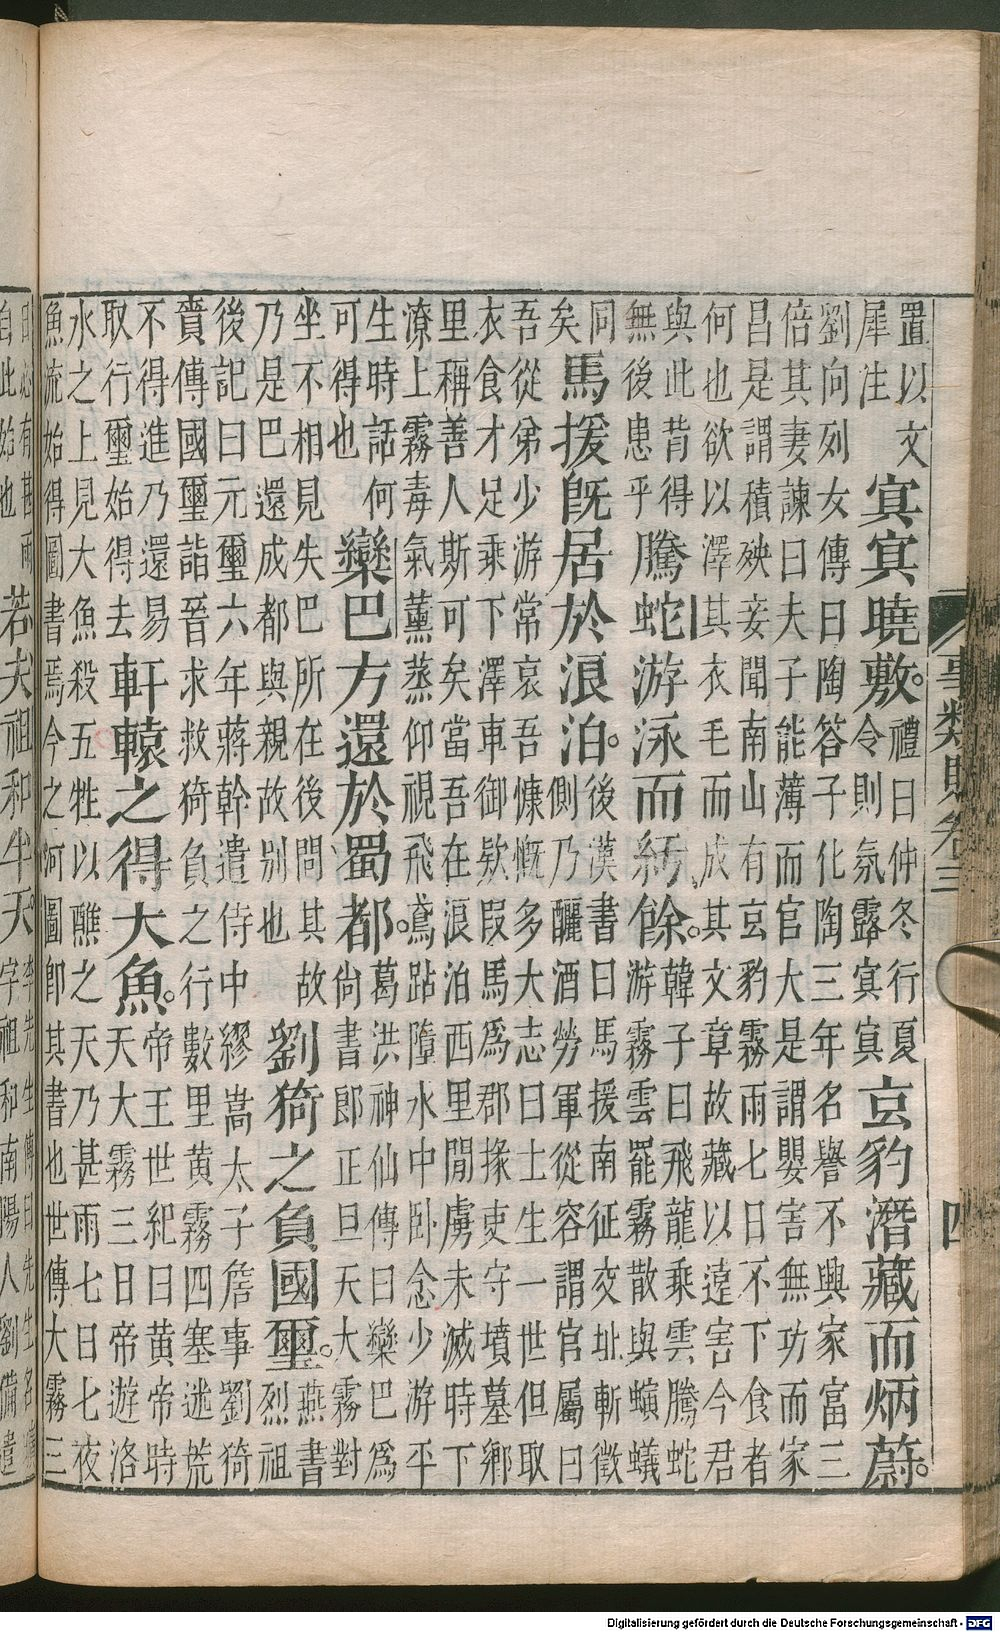 置以文
犀注
㝠㝠曉敷。
禮曰仲冬行夏
令則氛露㝠㝠
玄豹潛藏而炳蔚。
劉向列女傳曰陶答子化陶三年名譽不興家富三
倍其妻諫曰夫子能薄而官大是謂嬰害無功而家
昌是謂積殃妾聞南山有玄豹霧雨七日不下食者
何也欲以澤其衣毛而成其文章故藏以遠害今君
與此背得
無後患乎
騰蛇游泳而餘。
韓子曰飛龍乘雲騰蛇
游霧雲罷霧散與螾蟻
同
矣
馬援旣居於浪泊。
後漢書曰馬援南征交址斬徵
側乃釃酒勞軍從容謂官屬曰
吾從弟少游常哀吾慷慨多大志曰士生一世但取
衣食才足乘下澤車御欵段馬爲郡掾吏守墳墓鄉
里稱善人斯可矣當吾在浪泊西里閒虜未滅時下
潦上霧毒氣薰蒸仰視飛鳶跕墮水中卧念少游平
生時話何
可得也
欒巴方還於蜀都。
葛洪神仙傳曰欒巴爲
尙書郎正旦天大霧對
坐不相見失巴所在後問其故
乃是巴還成都與親故別也
劉猗之負國璽。
燕書
烈祖
後記曰元璽六年蔣幹遣侍中繆嵩太子詹事劉猗
賫傳國璽詣晉求救猗負之行數里黄霧四塞迷荒
不得進乃還易
取行璽始得去
軒轅之得大魚。
帝王世紀曰黄帝時
天大霧三日帝遊洛
水之上見大魚殺五牲以醮之天乃甚雨七日七夜
魚流始得圖書焉今之河圖卽其書也世傳大霧三
事類賦卷三
四
日必有甚雨
自此始也
若夫祖和半天。
李先生傳曰先生名
字祖和南陽人劉備遣
Digitalisierung gefördert durch die Deutsche Forschungsgemeinschaft - DFG